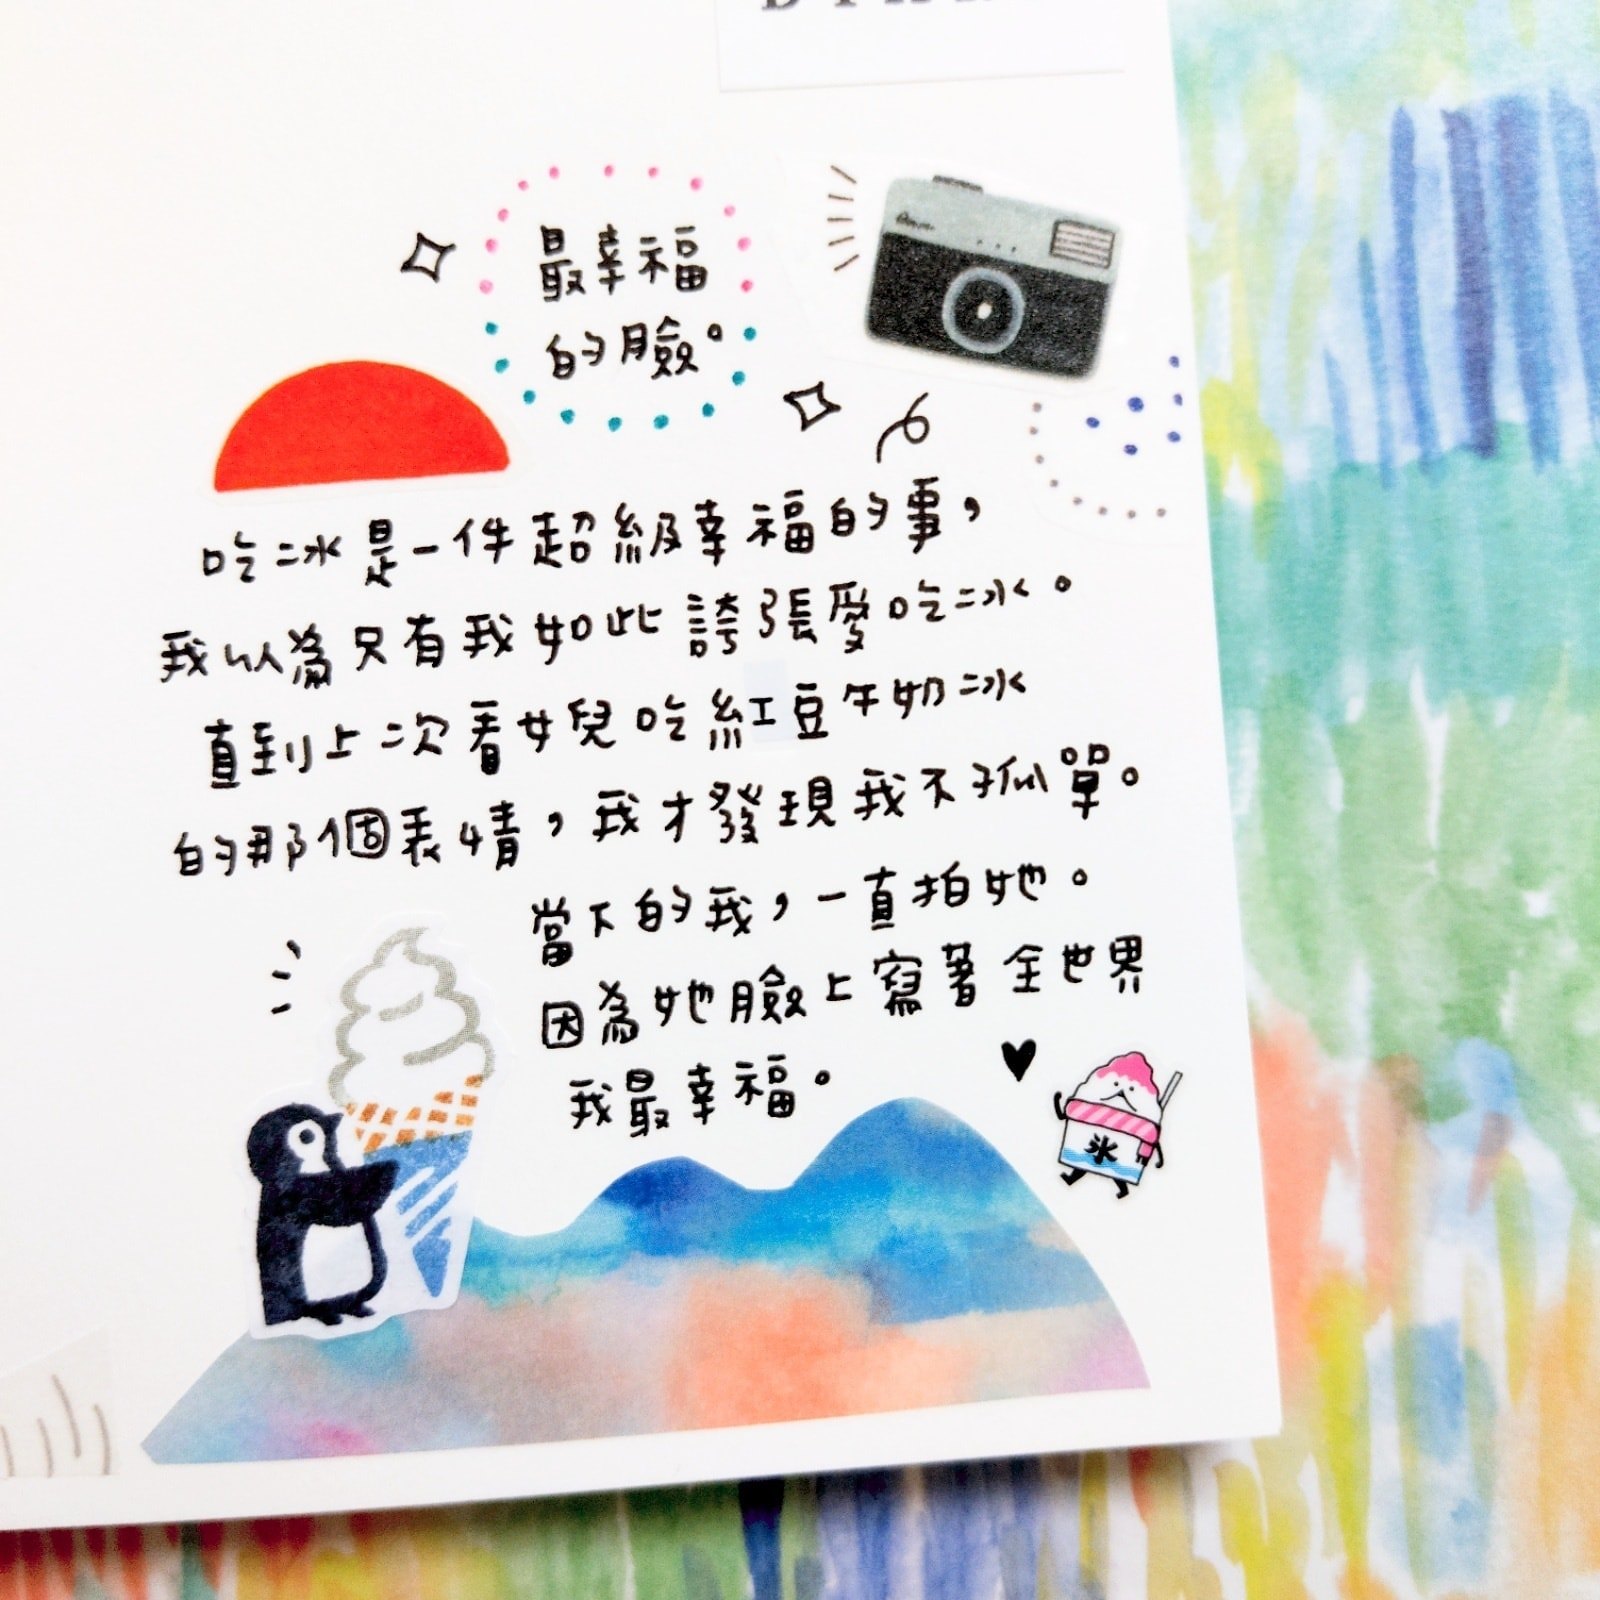 最幸福
的臉。
吃冰是一件超級幸福的事，
我以為只有我如此誇張愛吃冰。
直到上次看女兒吃紅豆牛奶冰
的那個表情，我才發現我不孤單。
當下的我，一直拍她。
因為她臉上寫著全世界
我最幸福。
氷